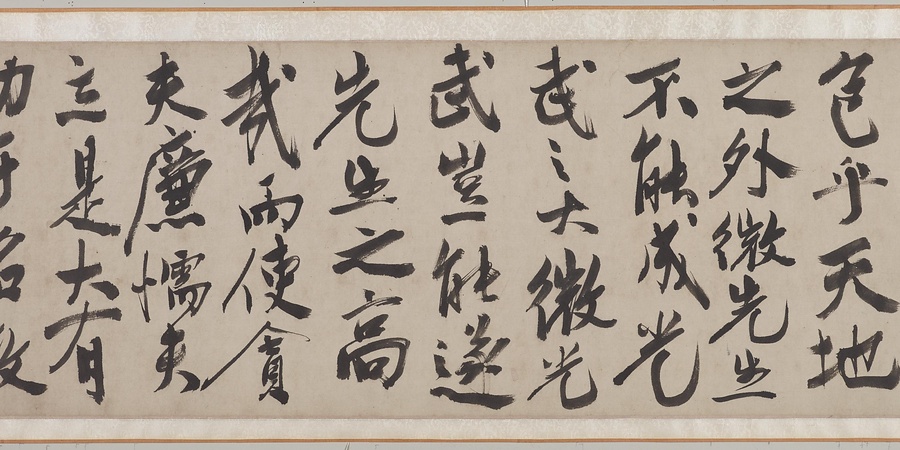 包乎天地
之外微先生
不能成光
武之大微光
武豈能遂
先生之高
哉而使貪
夫廉懦夫
立是大有
功于名教